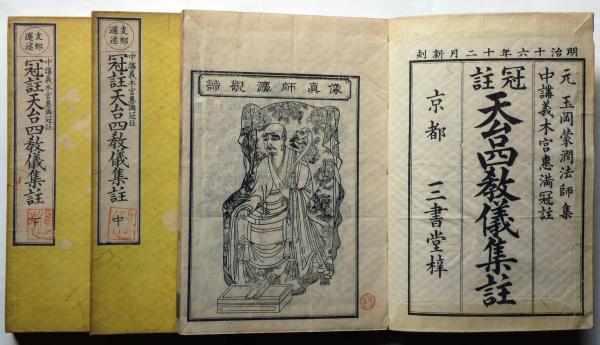 支那
選述
中講義木宮惠滿冠註
冠註天台四教儀集註
下
支那
選述
中講義木宮惠滿冠註
冠註天台四教儀集註
中
諦觀灋師真像
明治十六年十二月新刻
元 玉岡蒙潤法師集
中講義木宮惠滿冠註
冠註天台四教儀集註
京都 三書堂梓